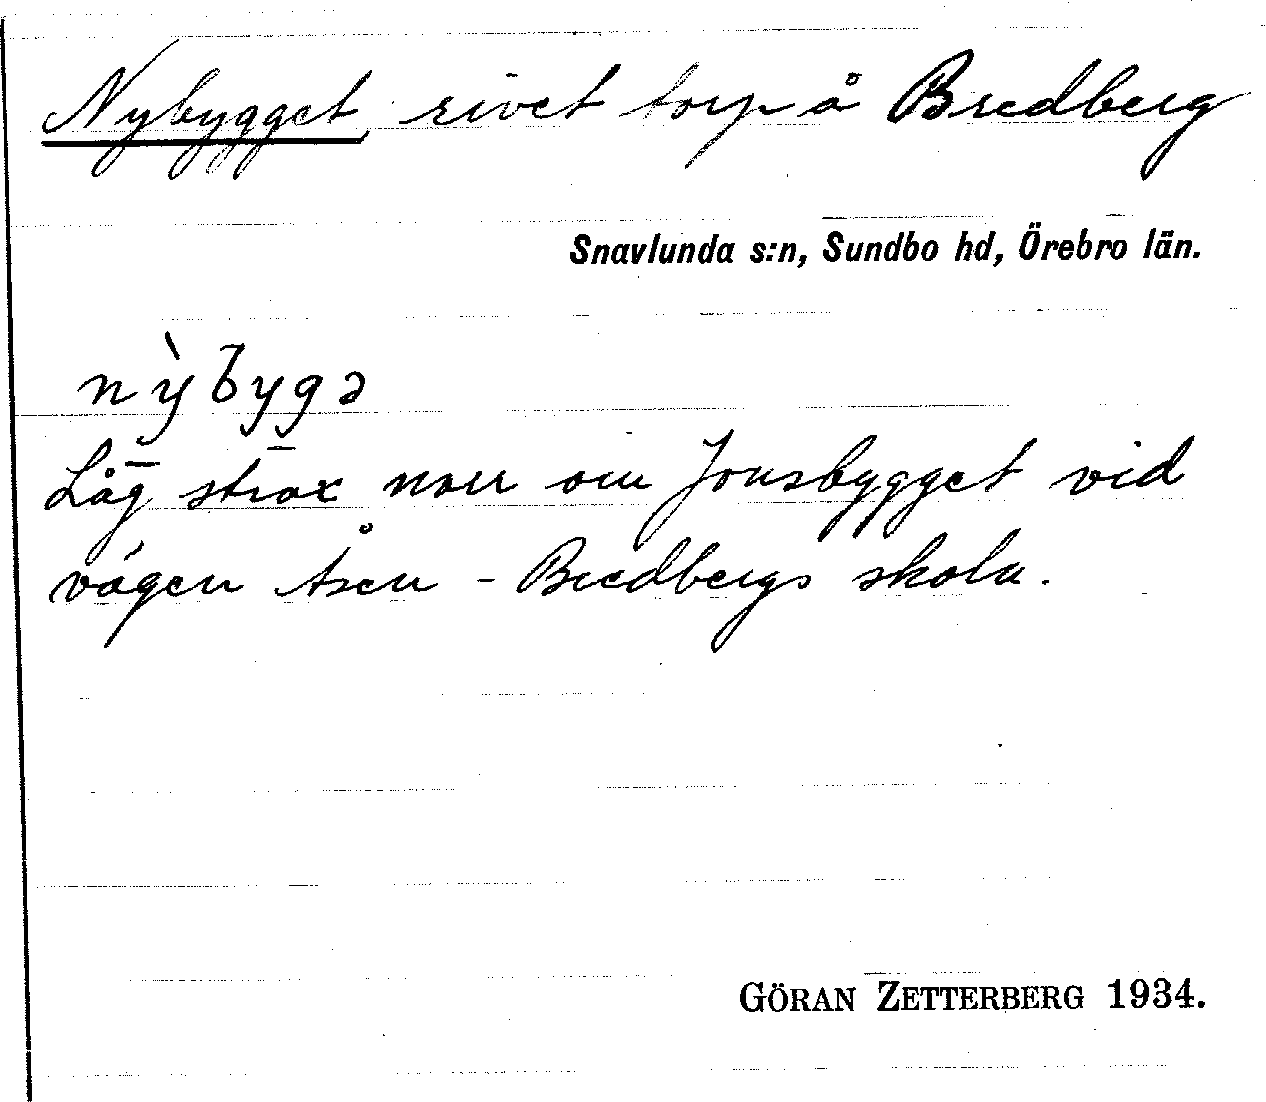 Nybygget, rivet torp å Bredberg
Snavlunda s:n, Sundbo hd, Örebro län.
nỳbygə
Låg strax norr om Jonsbygget vid
vägen Åsen - Bredbergs skola.
GÖRAN ZETTERBERG 1934.